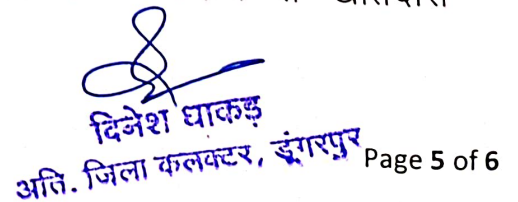 दिनेश धाकड़
अति. जिला कलक्टर, डूंगरपुर
Page 5 of 6